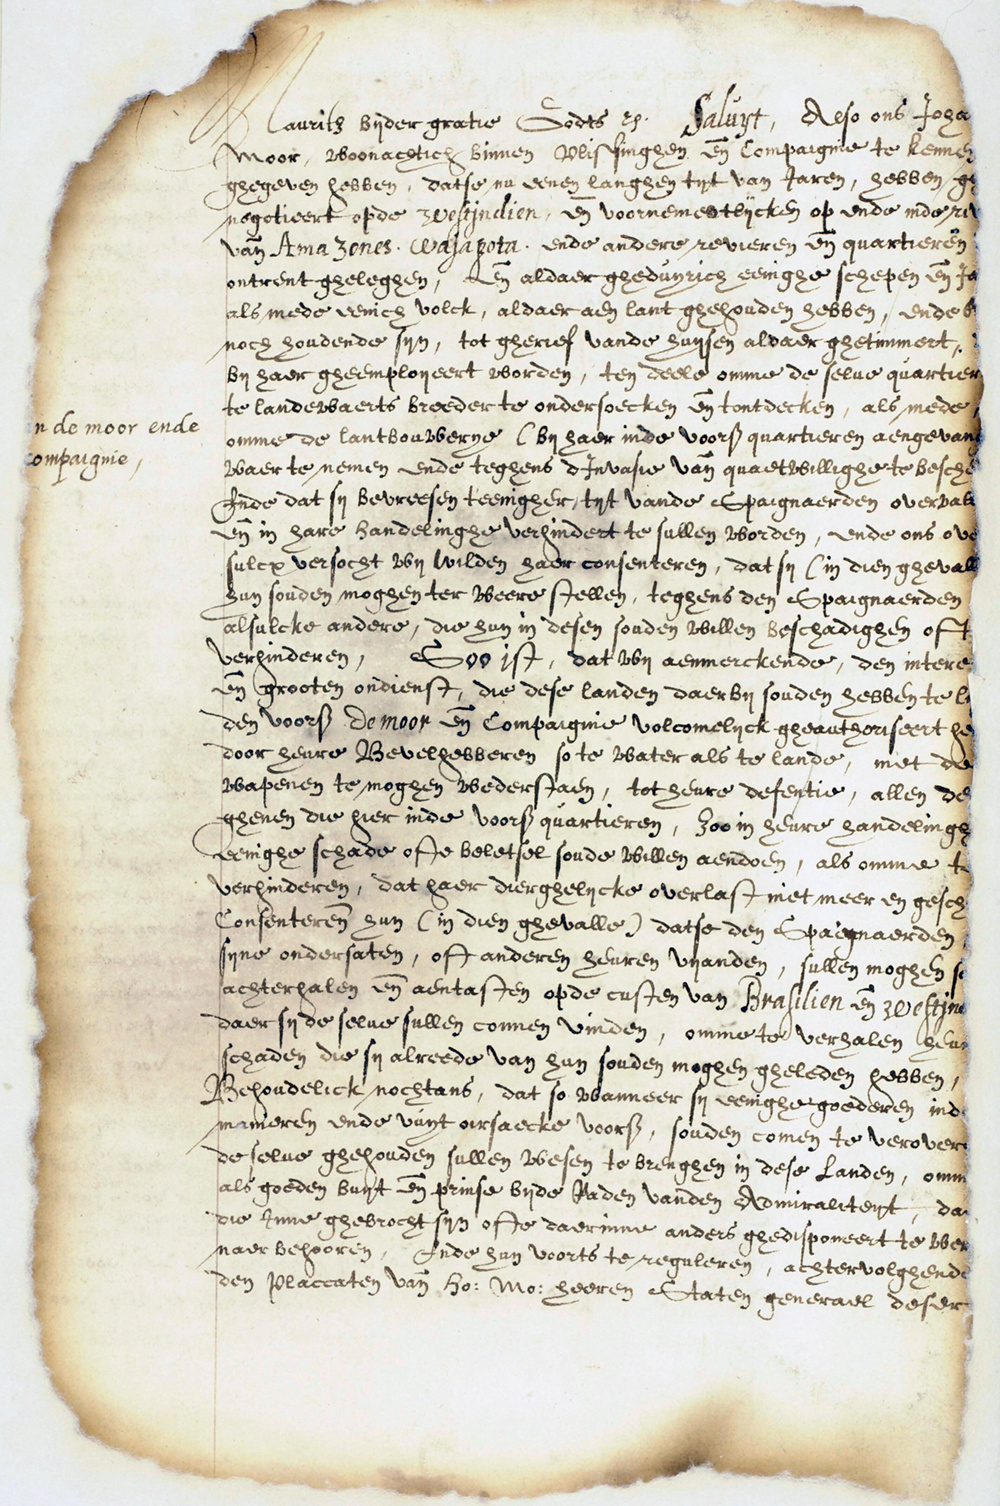 Mauritz bijder gratie Godts etc. Saluyt, Also ons Joha
Moor, woonachtich binnen Vlissinghen en̄ Compaignie te kennen
ghegeven hebben, datse nu eenen langhen tyt van Jaren, hebben ge
negotieert opde Westjndien, en̄ voornementlycken op ende inde re
van Amazones. Wajapota. ende andere revieren en̄ quartieren
ontrent gheleghen, en̄ aldaer gheduyrich eenighe schepen en̄ Ja
als mede eenich volck, aldaer aen lant ghehouden hebben, ende
noch houdende syn, tot gherief vande huysen aldaer ghetimmert,
by haer gheemployeert worden, ten deele omme de selve quartier
te landewaerts breeder te ondersoecken en̄ tontdecken, als mede
n de moor ende
ompaignie,
omme de lantbouwerye (by haer inde voorsz quartieren aengevan
waer te nemen ende teghens d'Invasie van quaetwillighe te besche
Ende dat sy bevreesen teenigher tyt vande Spaignaerden overval
en̄ in hare handelinghe verhindert te sullen worden, ende ons ove
sulcx versocht wy wilden haer consenteren, dat sy (in dien ghevall
hun souden moghen ter weere stellen, teghens den Spaignaerden
alsulcke andere, die hun in desen souden willen beschadighen oft
verhinderen, Soo ist, dat wy aenmerckende, den intere
en̄ grooten ondienst, die dese landen daerby souden hebben te l
den voorsz de moor en̄ Compaignie volcomelyck gheauthoriseert he
door heure Bevelhebberen so te water als te lande, met de
wapenen te moghen wederstaen, tot heure defentie, allen de
ghenen die hier inde voorsz quartieren, Zoo in heure handelingh
eenighe schade ofte beletsel soude willen aendoen, als omme te
verhinderen, dat haer dierghelycke overlast niet meer en gesch
Consenteren hun (in dien ghevalle) datse den Spaegnaerden
syne ondersaten, oft anderen heuren vyanden, sullen moghen
achterhalen en̄ aentasten opde custen van Brasilien en̄ Westjn
daer sy de selve sullen connen vinden, omme te verhalen heur
schaden die sy alreede van hun souden moghen gheleden hebben,
Behoudelick nochtans, dat so wanneer sy eenighe goederen ind
manieren ende vuyt oirsaecke voorsz, souden comen te verover
de selve ghehouden sullen wesen te brenghen in dese Landen, omm
als goeden buyt en̄ prinse byde Raden vanden Admiraliteyt, da
die Inne ghebrocht syn ofte daerinne anders ghedisponeert te wer
naer behooren, Ende hun voorts te reguleren, achtervolghende
den Placcaten van Ho: Mo: heeren Staten generael deser